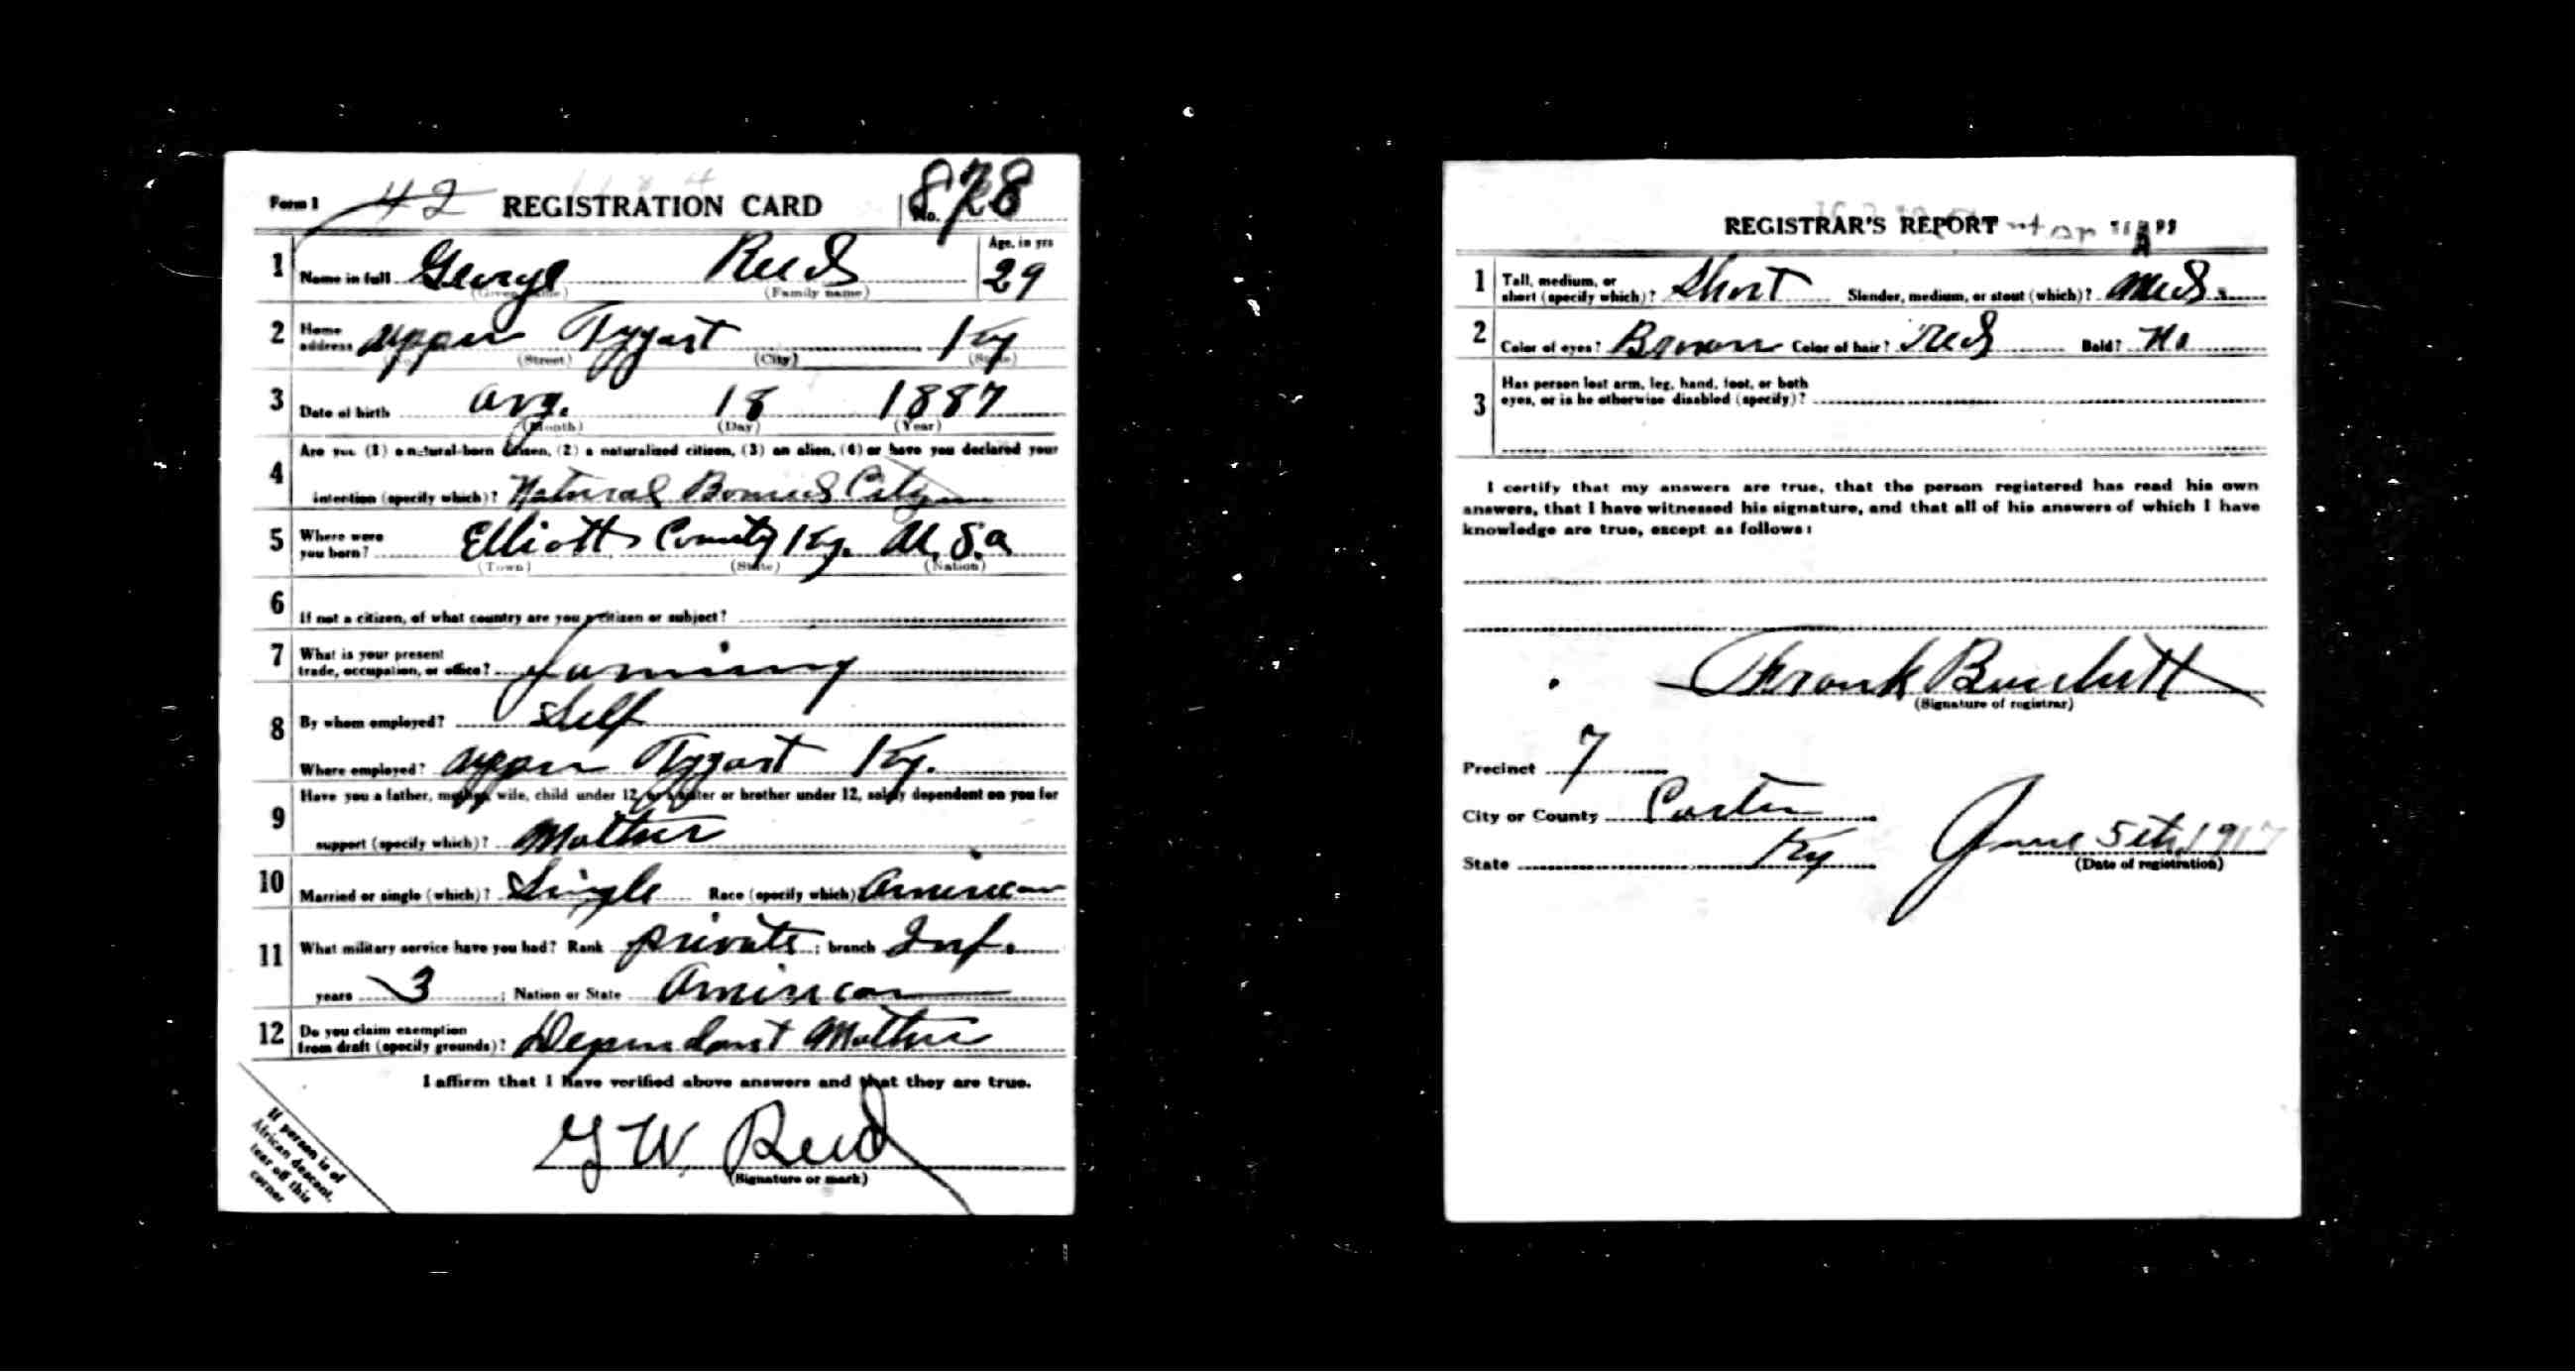 Form 1 42 REGISTRATION CARD No. 878
1 Name in full George Reed Age, in yrs
(Given name) (Family name) 29
2 Home address Upper Tygart Ky
(No.) (Street) (City) (State)
3 Date of birth Aug. 18 1887
(Month) (Day) (Year)
4 Are you (1) a natural-born citizen, (2) a naturalized citizen, (3) an alien, (4) or have you declared your
intention (specify which)? Natural
5 Where were you born? Elliott County Ky. U.S.a
(Town) (State) (Nation)
6 If not a citizen, of what country are you a citizen or subject?
7 What is your present trade, occupation, or office? farming
8 By whom employed? Self
Where employed? Upper Tygart Ky.
9 Have you a father, mother, wife, child under 12, or a sister or brother under 12, solely dependent on you for
support (specify which)? Mother
10 Married or single (which)? Single Race (specify which) American
11 What military service have you had? Rank private ; branch Inf.
years 3 ; Nation or State American
12 Do you claim exemption from draft (specify grounds)? Dependant Mother
I affirm that I have verified above answers and that they are true.
G W Reed
(Signature or mark)
If person is of
African descent,
tear off this
corner
REGISTRAR'S REPORT
1 Tall, medium, or short (specify which)? Short Slender, medium, or stout (which)? Med.
2 Color of eyes? Brown Color of hair? Red Bald? No
3 Has person lost arm, leg, hand, foot, or both
eyes, or is he otherwise disabled (specify)?
I certify that my answers are true, that the person registered has read his own
answers, that I have witnessed his signature, and that all of his answers of which I have
knowledge are true, except as follows:
Frank Burchett
(Signature of registrar)
Precinct 7
City or County Carter
State Ky June 5th, 1917
(Date of registration)